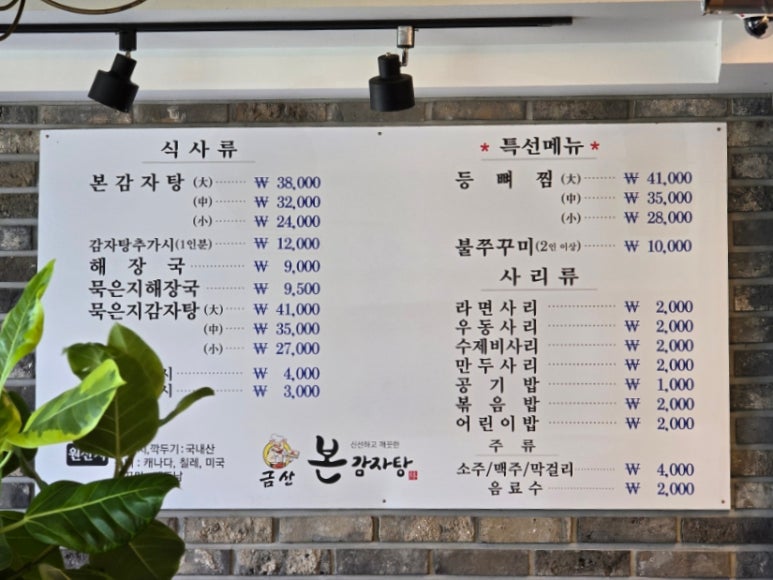 식사류
본감자탕 (大) ₩ 38,000
(中) ₩ 32,000
(小) ₩ 24,000
감자탕추가시(1인분) ₩ 12,000
해장국 ₩ 9,000
묵은지해장국 ₩ 9,500
묵은지감자탕 (大) ₩ 41,000
(中) ₩ 35,000
(小) ₩ 27,000
시 ₩ 4,000
시 ₩ 3,000
깍두기 : 국내산
: 캐나다, 칠레, 미국
금산
신선하고 깨끗한
본감자탕
* 특선메뉴 *
등뼈찜 (大) ₩ 41,000
(中) ₩ 35,000
(小) ₩ 28,000
불쭈꾸미(2인 이상) ₩ 10,000
사리류
라면사리 ₩ 2,000
우동사리 ₩ 2,000
수제비사리 ₩ 2,000
만두사리 ₩ 2,000
공기밥 ₩ 1,000
볶음밥 ₩ 2,000
어린이밥 ₩ 2,000
주류
소주/맥주/막걸리 ₩ 4,000
음료수 ₩ 2,000